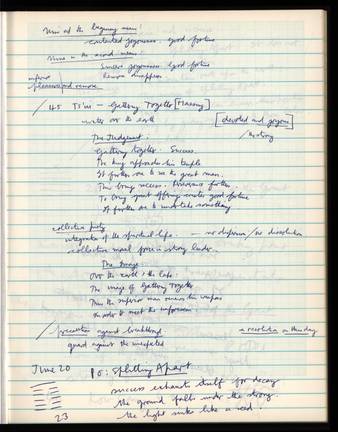 Nine at the beginning means:
contented joyousness. Good fortune
Nine in the second means:
Sincere joyousness Good fortune
Remorse disappears.
inferior
pleasures and remorse
/ 45 Ts'ui — Gathering Together [Massing]
water over the earth
devoted and joyous
/ the strong
The Judgment.
Gathering together. Success.
The king approaches his temple
It furthers one to see the great man.
This brings success. Perseverance furthers.
To bring great offerings creates good fortune
It furthers one to undertake something
collective piety
integration of the spiritual life. — no dispersion / no dissolution
collective moral force in strong leader.
The Image.
Over the earth, the lake:
The image of Gathering Together
Thus the superior man renews his weapons
In order to meet the unforeseen.
/ precaution against breakthrough
a resolution on this day
guard against the unexpected
June 20
Po: Splitting Apart
success exhausts itself for decay
the ground falls under the strong.
23
the light sinks like a seed.